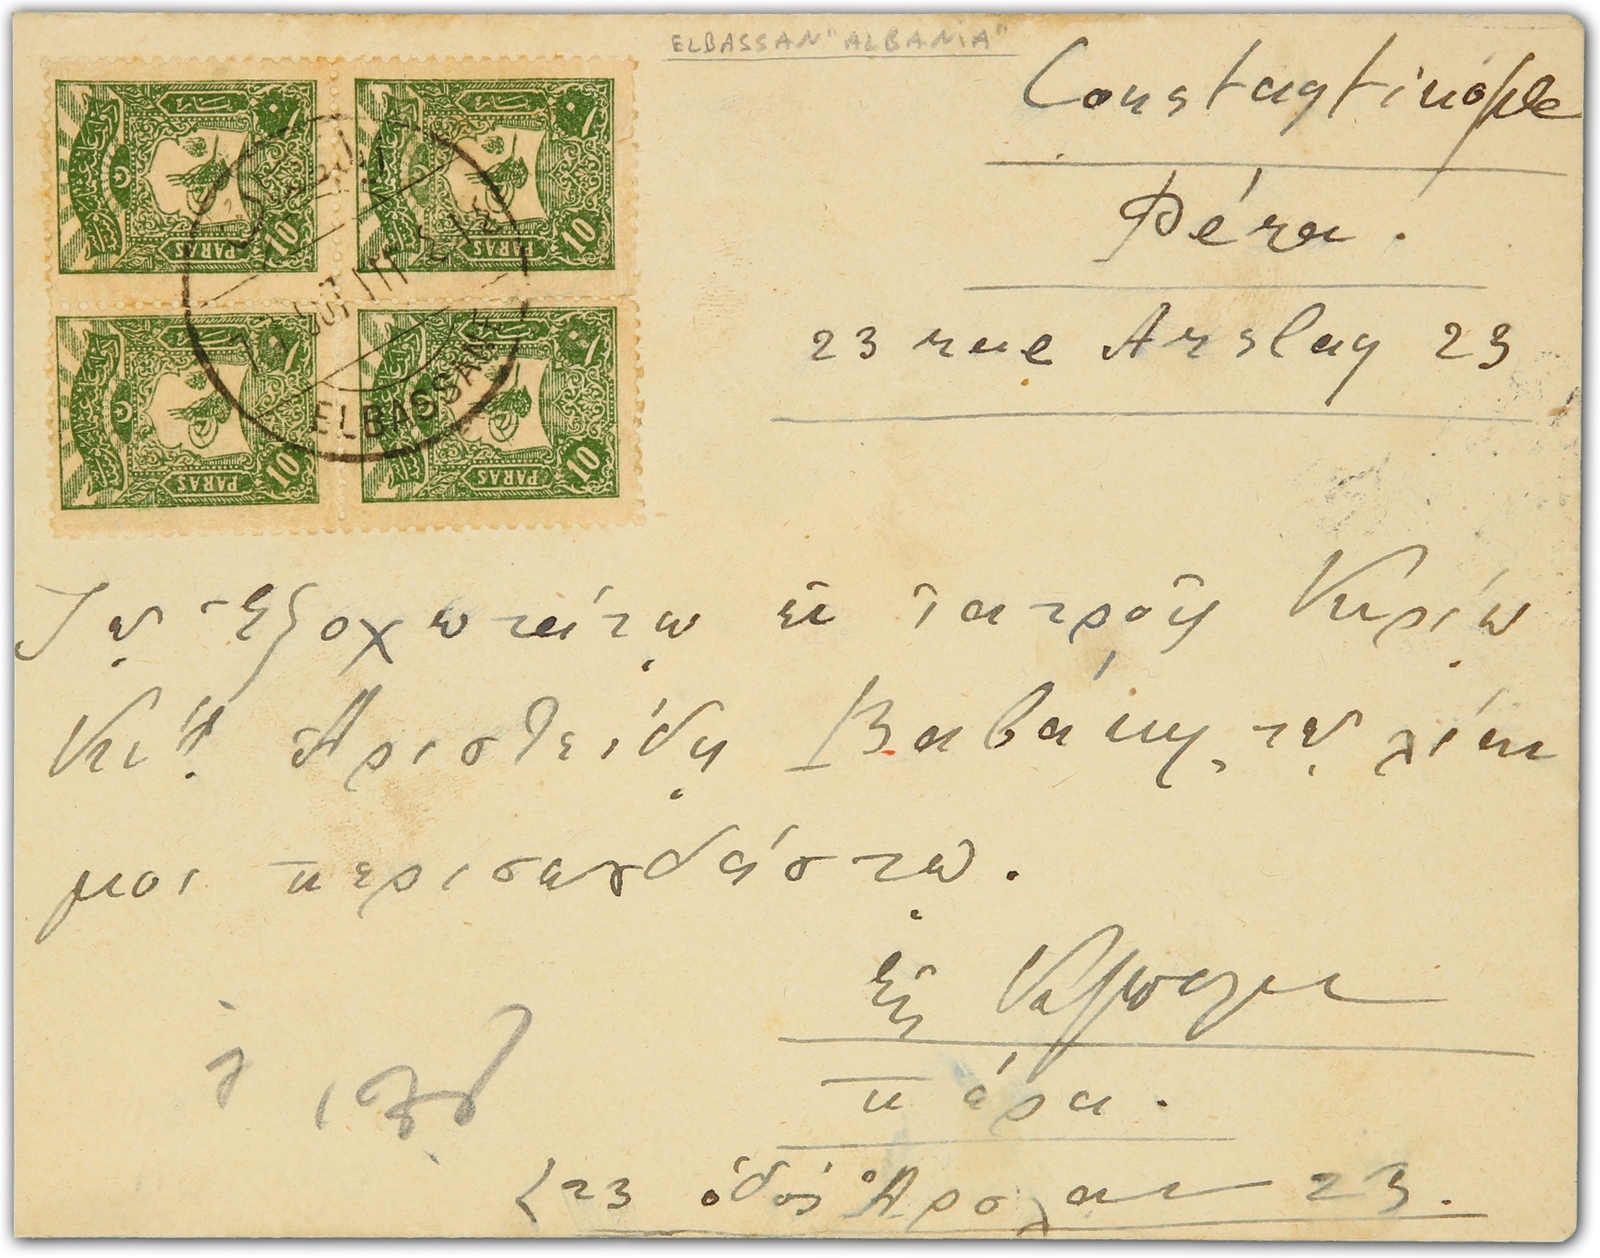 ELBASSAN "ALBANIA"
Constantinople
Péra.
23 rue Arslan 23
10 PARAS
10 PARAS
10 PARAS
10 PARAS
ELBASSAN
Τῷ Ἐξοχωτάτῳ ἐν ἰατροῖς Κυρίῳ
Κῳ Ἀριστείδῃ Βαβάκῃ, τῷ λίαν
μοι περισπουδάστῳ.
Εἰς Κ/πολιν
Πέρα.
23 ὁδός Ἀρσλαν 23.